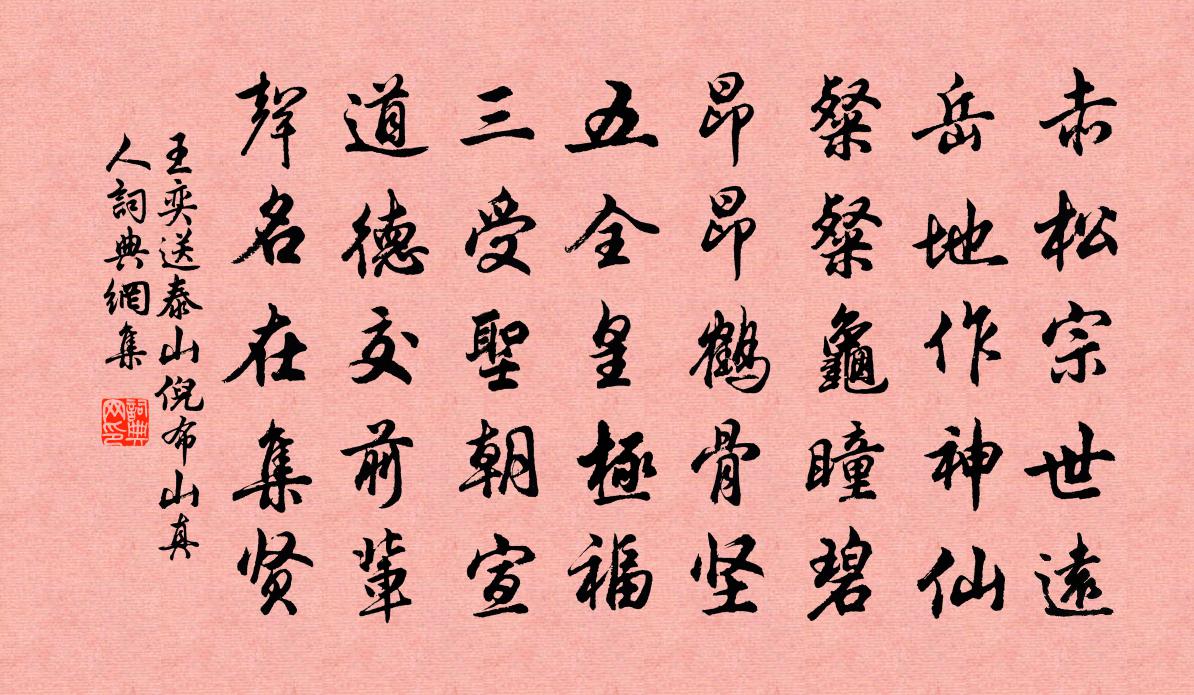 赤松宗世遠
岳地作神仙
粲粲龜瞳碧
昂昂鶴骨坚
五全皇極福
三受聖朝宣
道德交前輩
聲名在集贤
王奕送泰山倪布山真
人詞典網集
詞典网印